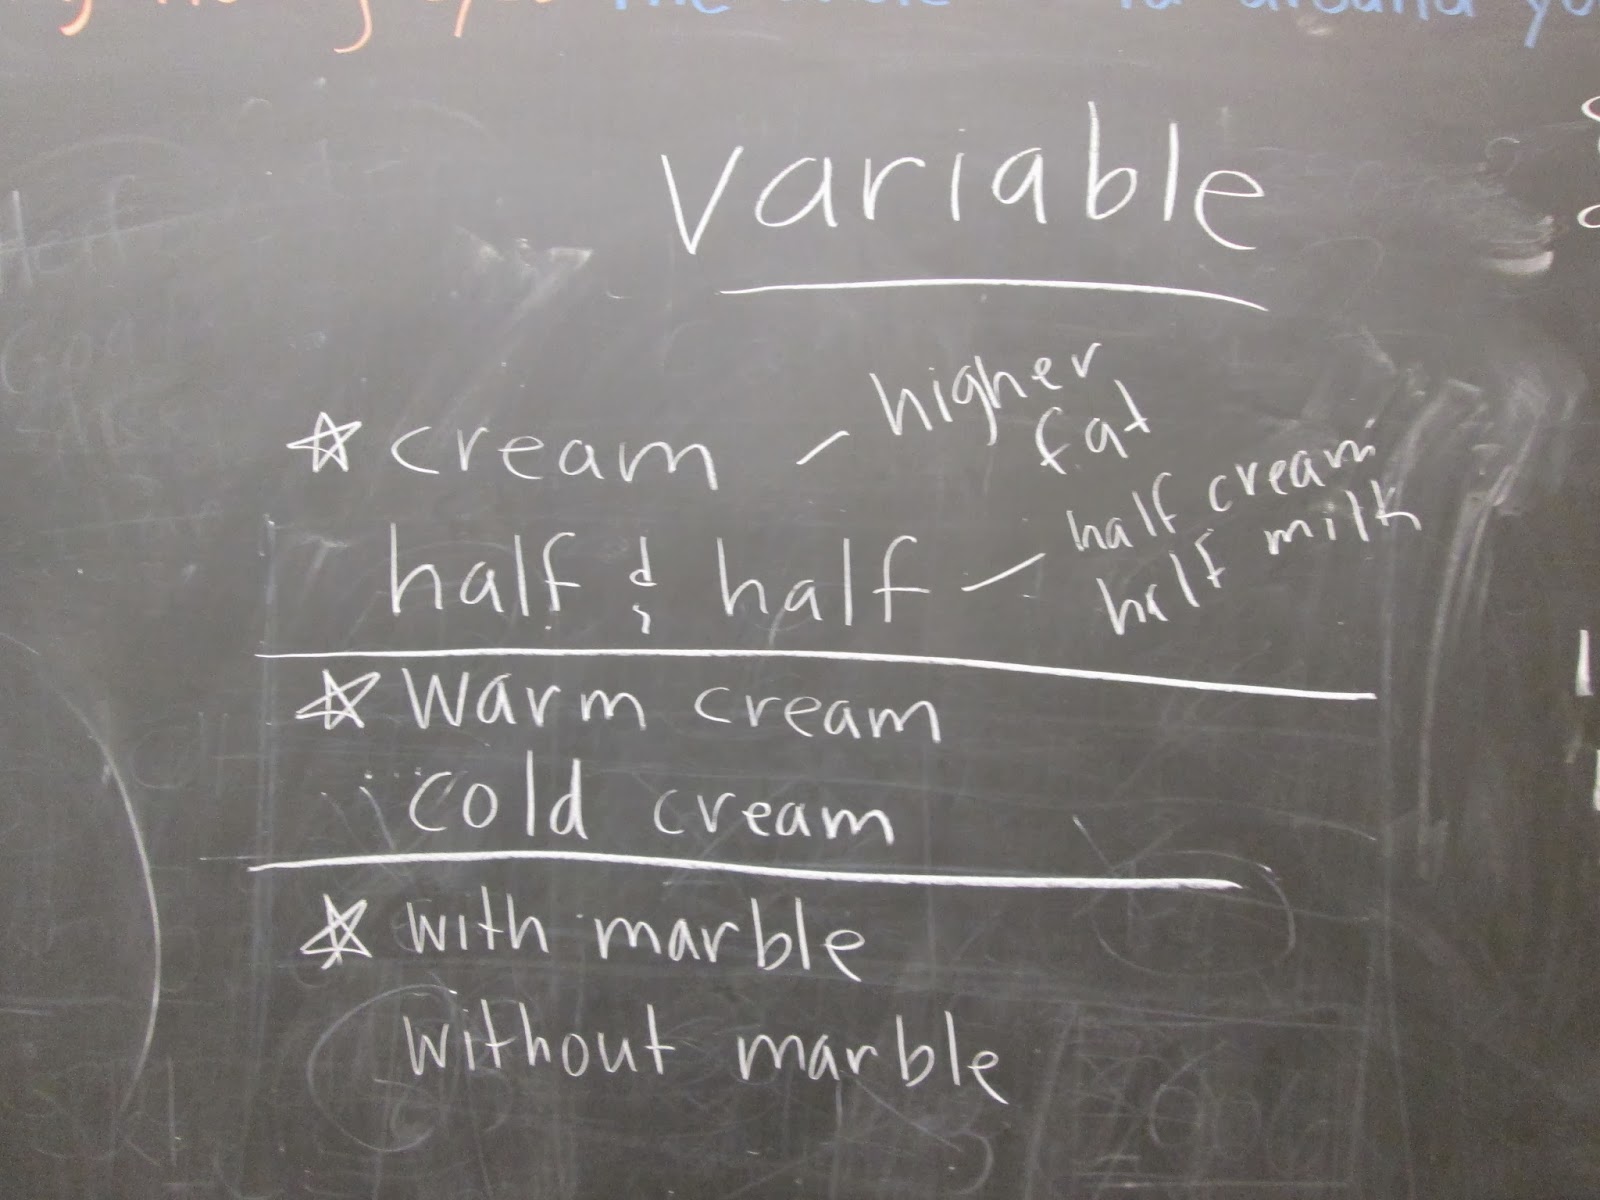 variable
☆ cream – higher fat
half & half – half cream half milk
☆ warm cream
cold cream
☆ with marble
without marble